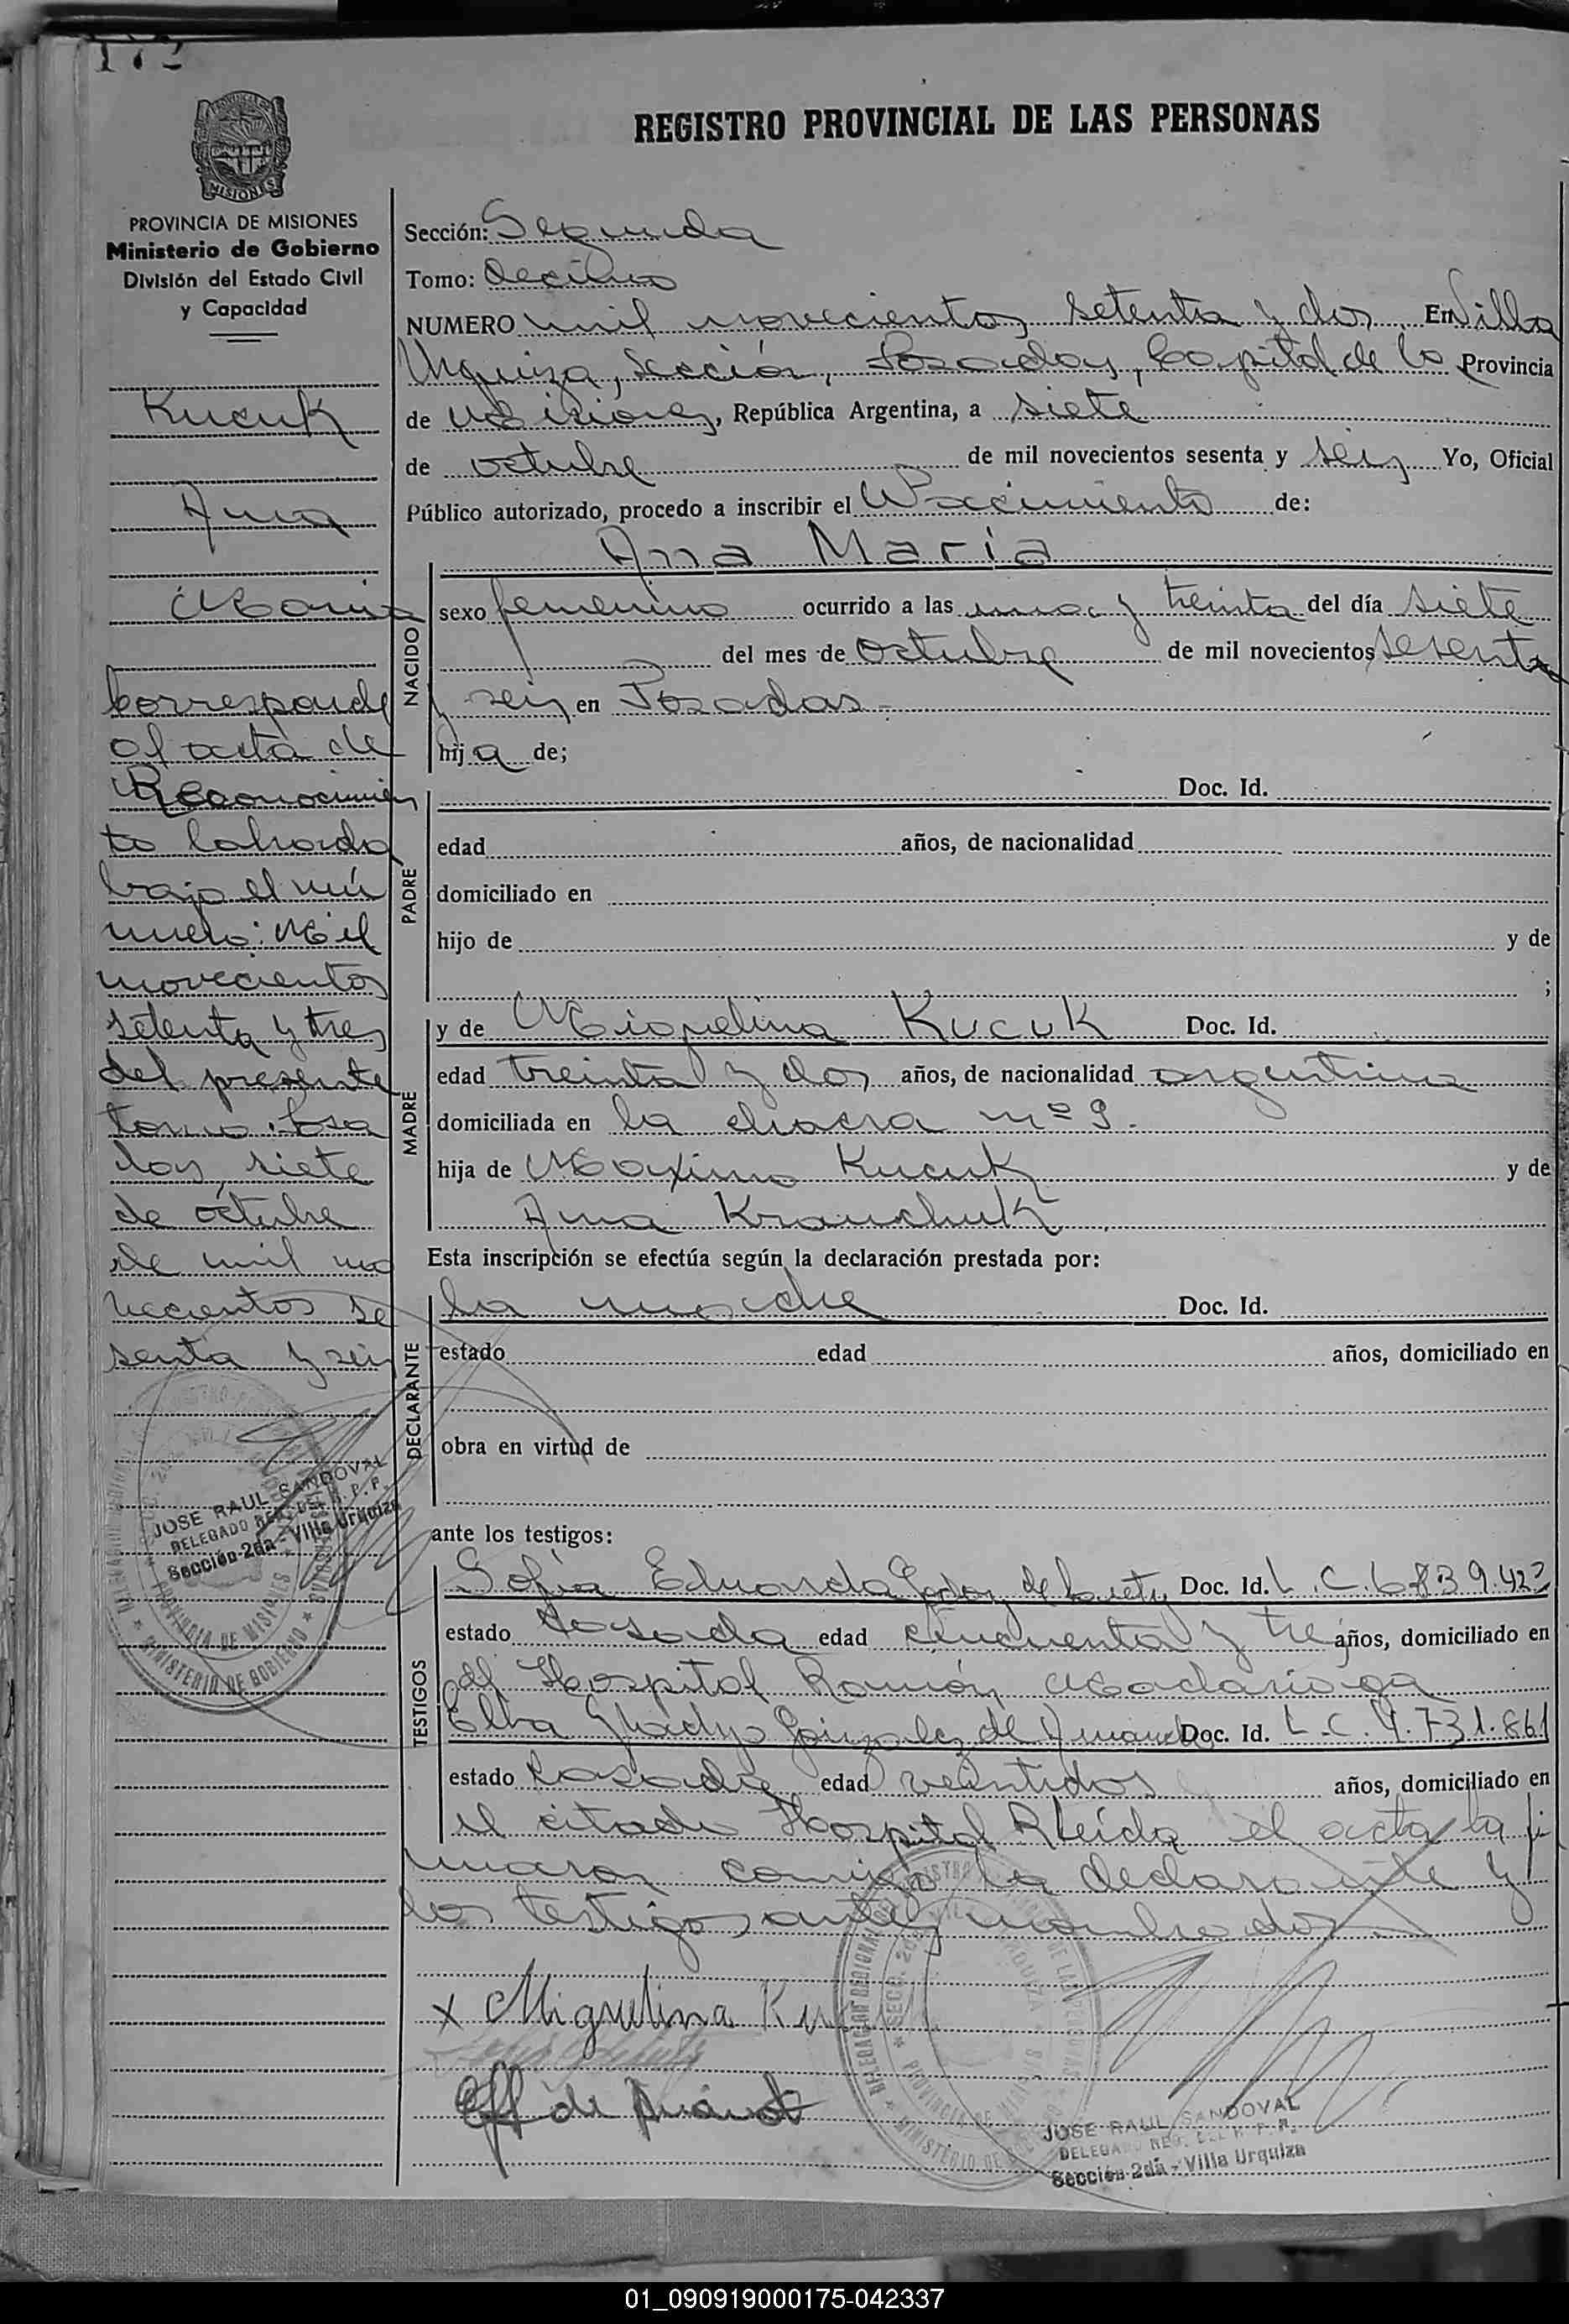 172
REGISTRO PROVINCIAL DE LAS PERSONAS
MISIONES
PROVINCIA DE MISIONES
Ministerio de Gobierno
División del Estado Civil
y Capacidad
Kucuk
Ana
Maria
Corresponde
al acta de
Reconocimien
to labrada
bajo el nú
mero: Mil
novecientos
setenta y tres
del presente
tomo. Posa
das, siete
de octubre
de mil no
vecientos se
senta y seis
JOSE RAUL SANDOVAL
DELEGADO REG. DEL R. P. P.
Sección 2da - Villa Urquiza
PROVINCIA DE MISIONES
MINISTERIO DE GOBIERNO
Sección: Segunda
Tomo: decimo
NUMERO mil novecientos setenta y dos. En Villa
Urquiza, sección, Posadas, Capital de la Provincia
de Misiones, República Argentina, a siete
de octubre de mil novecientos sesenta y seis Yo, Oficial
Público autorizado, procedo a inscribir el Nacimiento de:
NACIDO
Ana Maria
sexo femenino ocurrido a las una y treinta del día siete
del mes de octubre de mil novecientos sesenta
y seis en Posadas.-
hija de;
PADRE
Doc. Id.
edad años, de nacionalidad
domiciliado en
hijo de y de
;
MADRE
y de Miguelina Kucuk Doc. Id.
edad treinta y dos años, de nacionalidad argentina
domiciliada en la chacra nº 9.
hija de Maximo Kucuk y de
Ana Krauchuk
Esta inscripción se efectúa según la declaración prestada por:
DECLARANTE
la madre Doc. Id.
estado edad años, domiciliado en
obra en virtud de
ante los testigos:
TESTIGOS
Sofia Eduarda Godoy de Doc. Id. L.C. 6839.423
estado casada edad cincuenta y tres años, domiciliado en
el Hospital Ramón Madariaga
Elba Gladys Gonzalez de Doc. Id. L.C. 4.731.861
estado casada edad veintidos años, domiciliado en
el citado Hospital R Leída el acta la fi
maron conmigo la declarante y
los testigos antes nombrados
x Miguelina Ku
JOSE RAUL SANDOVAL
DELEGADO REG. DEL R. P. P.
Sección 2da - Villa Urquiza
01_090919000175-042337